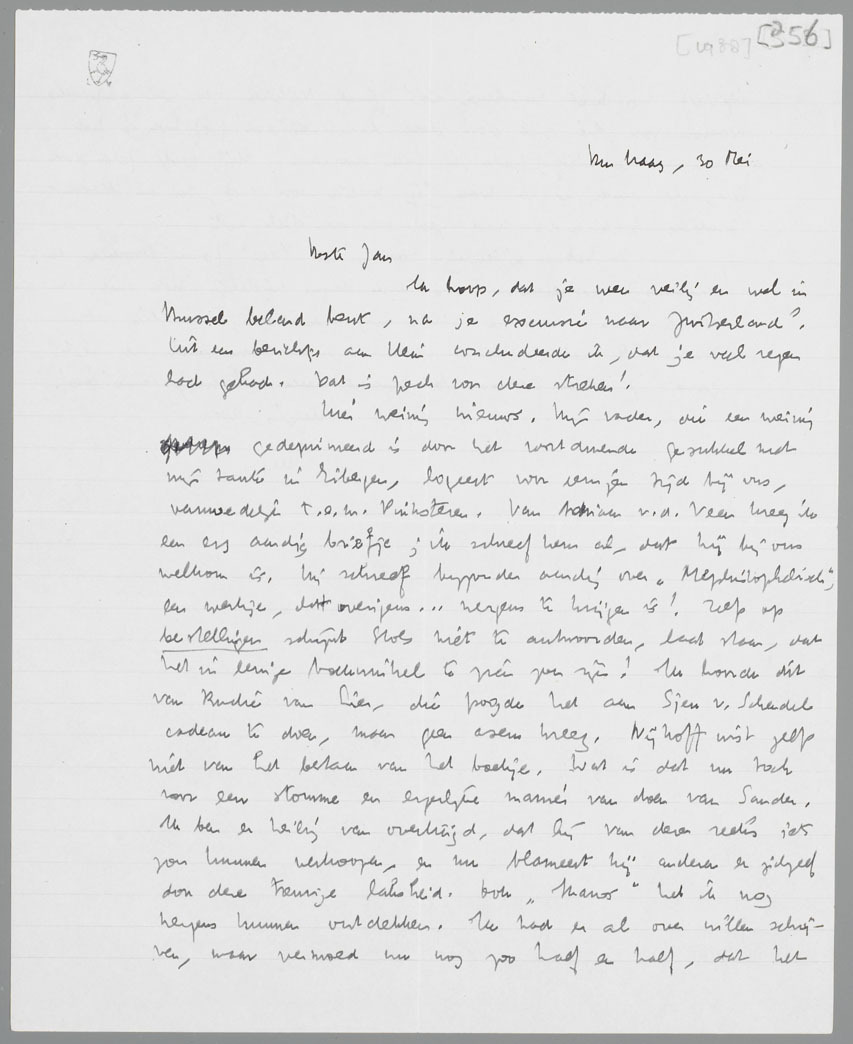 [1938] [356]
Den Haag, 30 Mei
Beste Jan
Ik hoop, dat je weer veilig en wel in
Brussel beland bent, na je excursie naar Zwitserland?
Uit een berichtje aan Stein concludeerde ik, dat je veel regen
had gehad. Dat is pech voor deze streken!
Hier weinig nieuws. Mijn vader, die een weinig
gedeprimeerd is door het voortdurende gesukkel met
mijn tante in Eibergen, logeert voor eenigen tijd bij ons,
vanwege t.e.m. Pinksteren. Van Adriaan v.d. Veen kreeg ik
een erg aardig briefje; ik schreef hem al, dat hij bij ons
welkom is. Hij schreef bijzonder aardig over "Mephistophelisch",
een werkje, dat overigens... nergens te krijgen is! Zelfs op
bestellingen schijnt Stols niét te antwoorden, laat staan, dat
het in eenige boekwinkel te zien zou zijn! Ik hoorde dit
van Rudie van Lier, die poogde het aan Sjen v. Schendel
cadeau te doen, maar geen asem kreeg. Nijhoff wist zelfs
niét van het bestaan van het boekje. Wat is dat nu toch
voor een stomme en manier van doen van Sander.
Ik ben er heilig van overtuigd, dat hij van deze reeks iets
zou kunnen verkoopen, en nu blameert hij anderen en zichzelf
door deze treurige laksheid. Ook "Manos" heb ik nog
nergens kunnen ontdekken. Ik had er al over willen schrij-
ven, maar vermoed nu nog zoo half en half, dat het